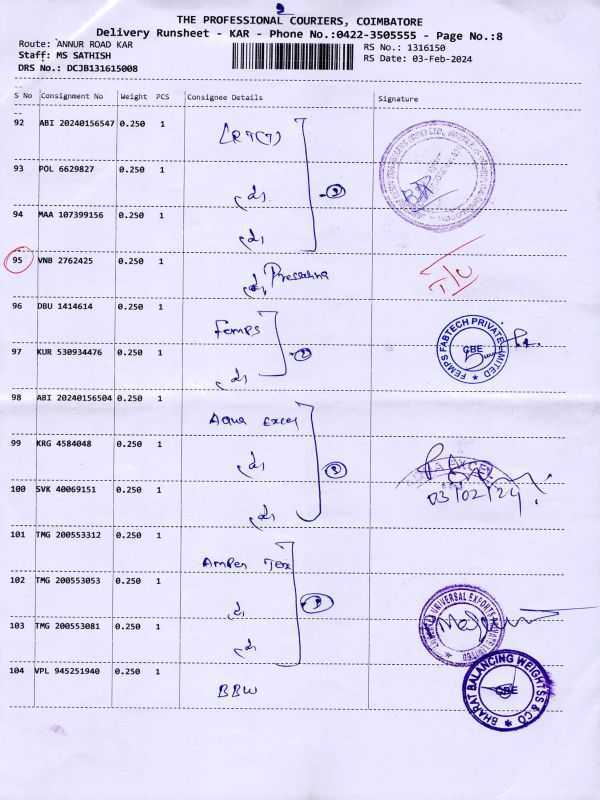 9
THE PROFESSIONAL COURIERS, COIMBATORE
Delivery Runsheet - KAR - Phone No.:0422-3505555 - Page No.:8
Route: ANNUR ROAD KAR
RS No.: 1316150
Staff: MS SATHISH
RS Date: 03-Feb-2024
DRS No.: DCJB131615008
S No Consignment No Weight PCS Consignee Details Signature
92 ABI 20240156547 0.250 1
93 POL 6629827 0.250 1
94 MAA 107399156 0.250 1
95 VNB 2762425 0.250 1
96 DBU 1414614 0.250 1 Femps
FEMPS FABTECH PRIVATE LIMITED
CBE
97 KUR 530934476 0.250 1
98 ABI 20240156504 0.250 1 Aqua Excel
99 KRG 4584048 0.250 1
03/02/24
100 SVK 40069151 0.250 1
101 TMG 200553312 0.250 1
102 TMG 200553053 0.250 1
UNIVERSAL EXPORTS PRIVATE LIMITED
103 TMG 200553081 0.250 1
104 VPL 945251940 0.250 1 BBW
BHARAT BALANCING WEIGHTSS & CO
CBE